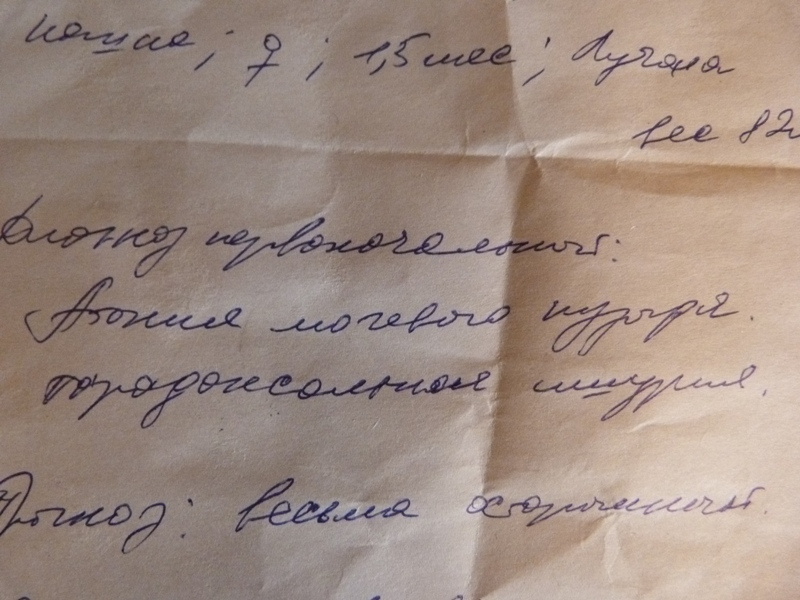 кошка; ♀; 1,5 мес; Лучана
вес 82
Диагноз первоначальный:
Атония мочевого пузыря.
парадоксальная ишурия.
Прогноз: весьма осторожный.